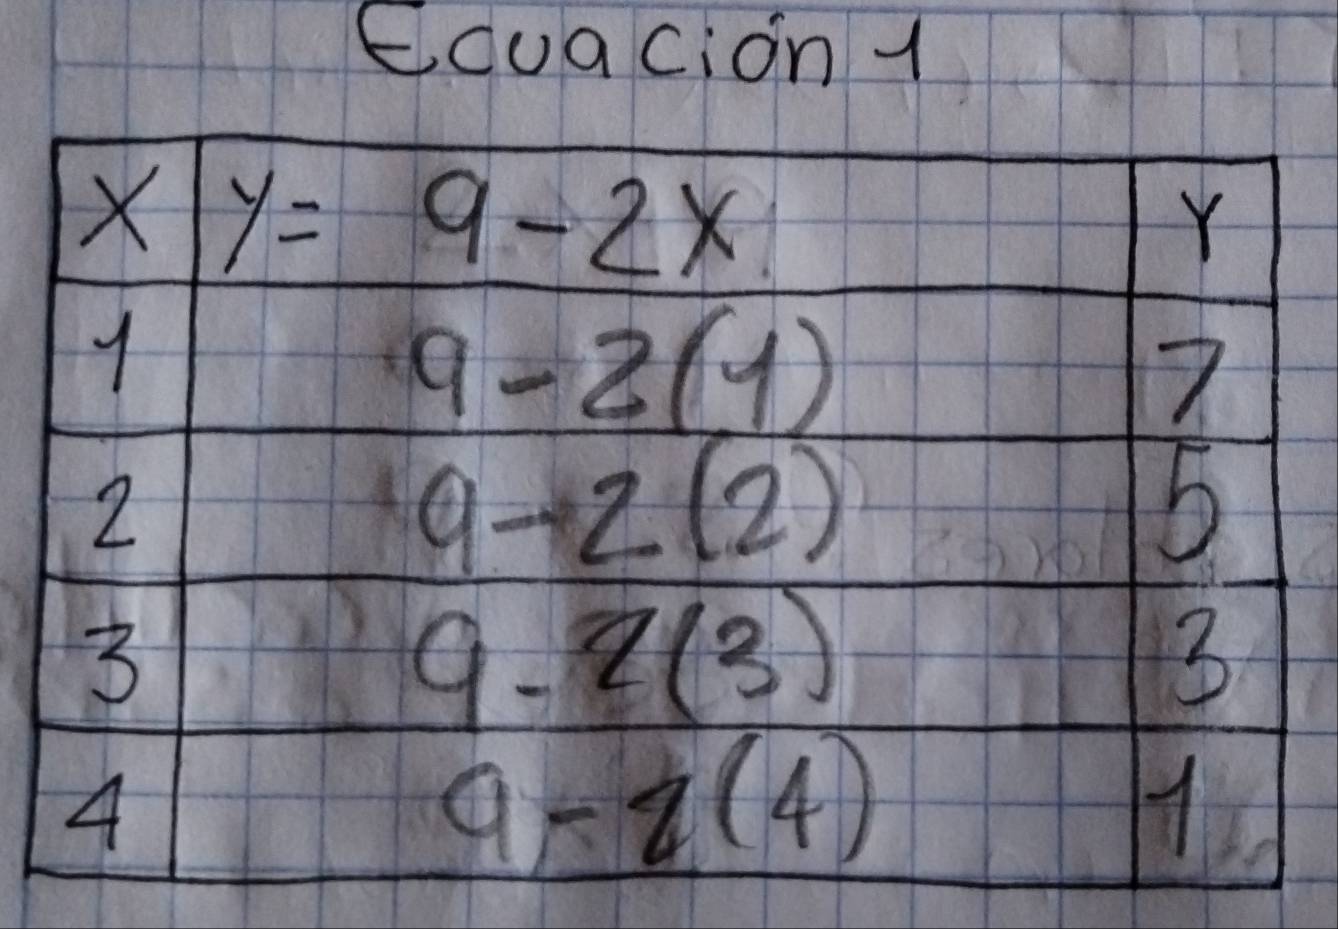 Ecuación 1
X Y= 9-2X Y
1 9-2(1) 7
2 9-2(2) 5
3 9-2(3) 3
4 9-2(4) 1